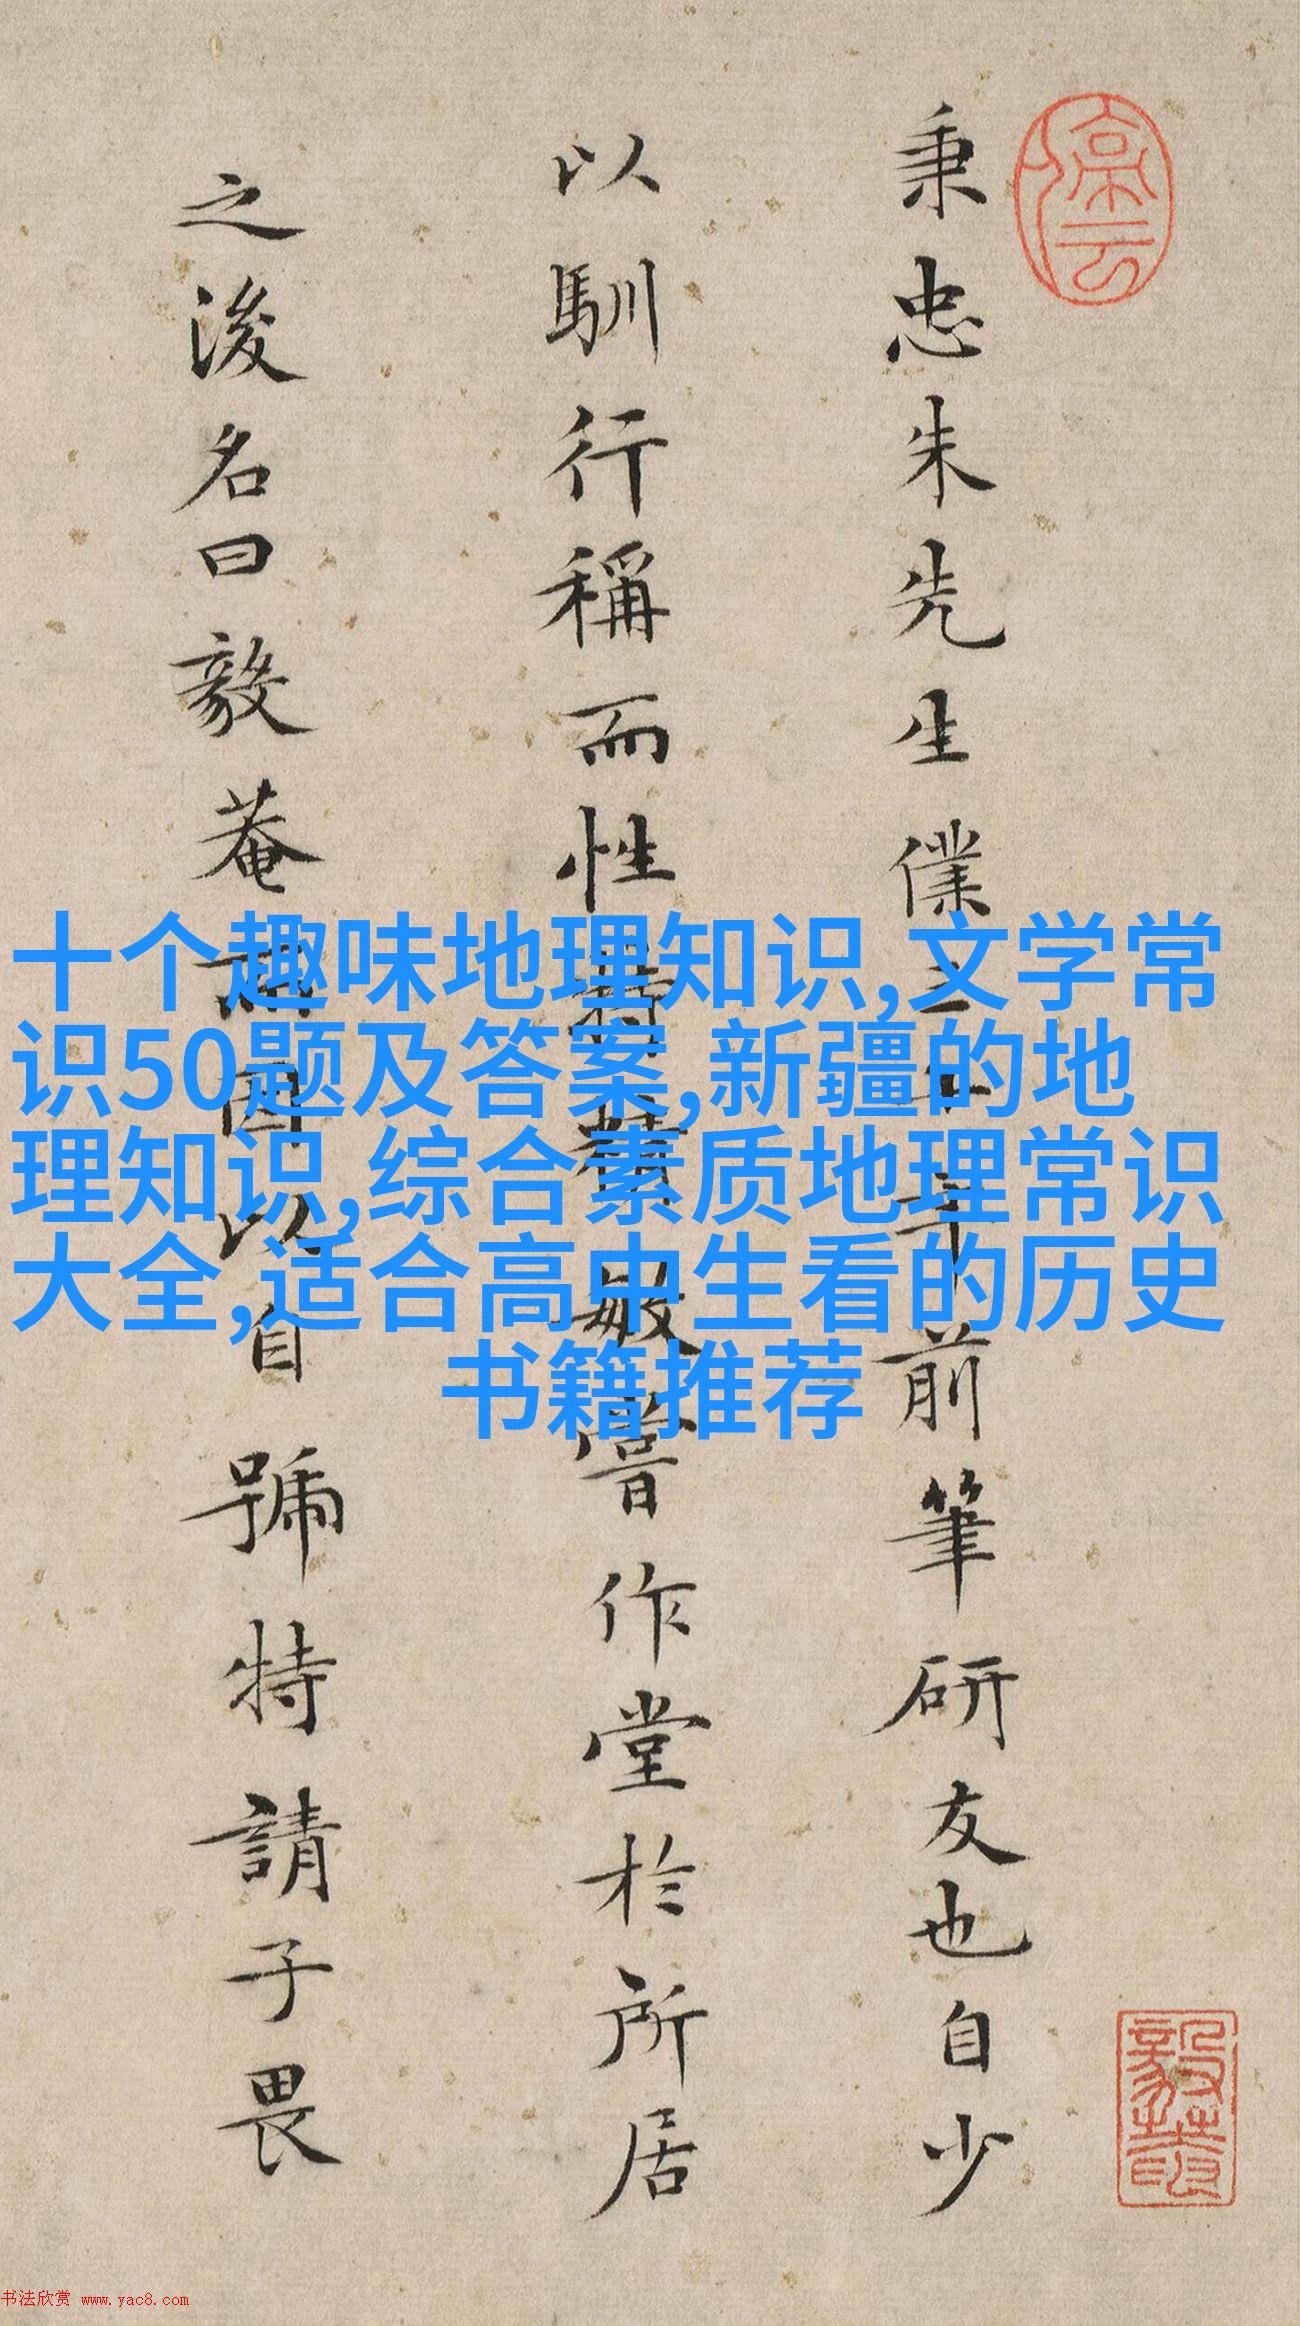 停云
秉忠朱先生僕三十年前筆研友也自少
以馴行稱而性特精敏嘗作堂於所居
之後名曰毅菴而因以自號特請子畏
十个趣味地理知识,文学常
识50题及答案,新疆的地
理知识,综合素质地理常识
大全,适合高中生看的历史
书籍推荐
书法欣赏 www.yac8.com